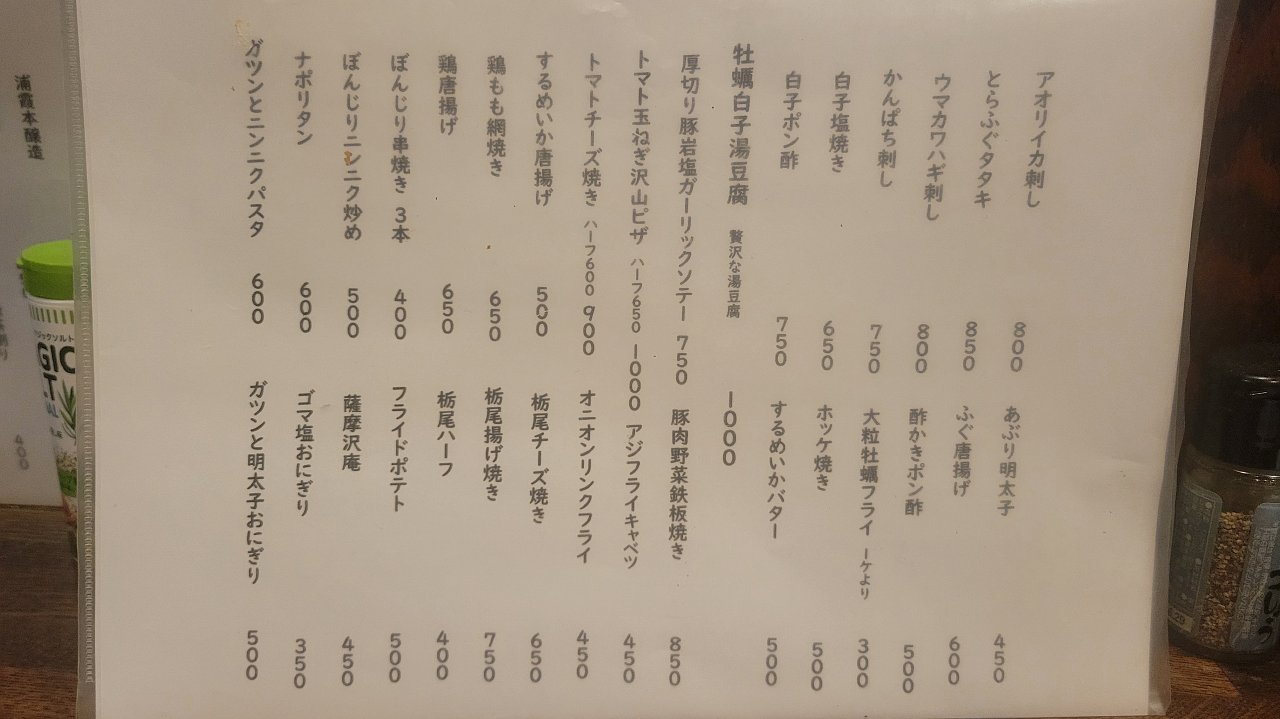 アオリイカ刺し 800
とらふぐタタキ 850
ウマカワハギ刺し 800
かんぱち刺し 750
白子塩焼き 650
白子ポン酢 750
牡蠣白子湯豆腐 贅沢な湯豆腐 1000
厚切り豚岩塩ガーリックソテー 750
トマト玉ねぎ沢山ピザ ハーフ650 1000
トマトチーズ焼き ハーフ600 900
するめいか唐揚げ 500
鶏もも網焼き 650
鶏唐揚げ 650
ぼんじり串焼き 3本 400
ぼんじりニンニク炒め 500
ナポリタン 600
ガツンとニンニクパスタ 600
あぶり明太子 450
ふぐ唐揚げ 600
酢かきポン酢 500
大粒牡蠣フライ 一ケより 300
ホッケ焼き 500
するめいかバター 500
豚肉野菜鉄板焼き 850
アジフライキャベツ 450
オニオンリンクフライ 450
栃尾チーズ焼き 650
栃尾揚げ焼き 750
栃尾ハーフ 400
フライドポテト 500
薩摩沢庵 450
ゴマ塩おにぎり 350
ガツンと明太子おにぎり 500
浦霞本醸造
400